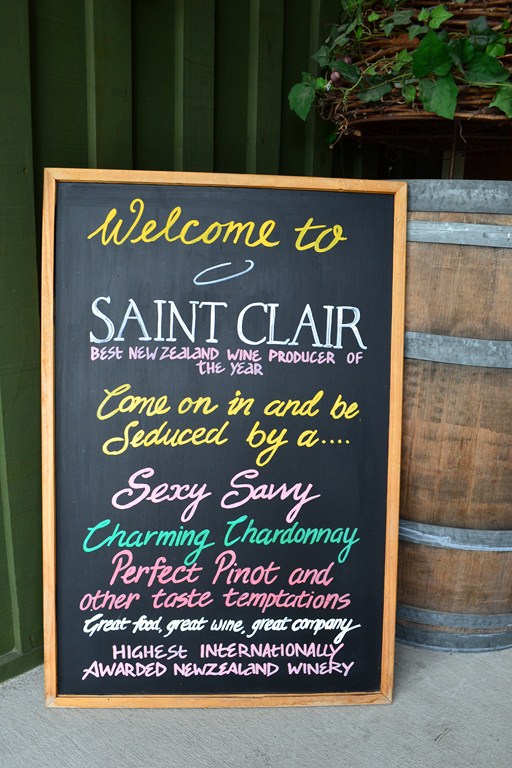 Welcome to
SAINT CLAIR
BEST NEW ZEALAND WINE PRODUCER OF
THE YEAR
Come on in and be
Seduced by a....
Sexy Savvy
Charming Chardonnay
Perfect Pinot and
other taste temptations
Great food, great wine, great company
HIGHEST INTERNATIONALLY
AWARDED NEWZEALAND WINERY